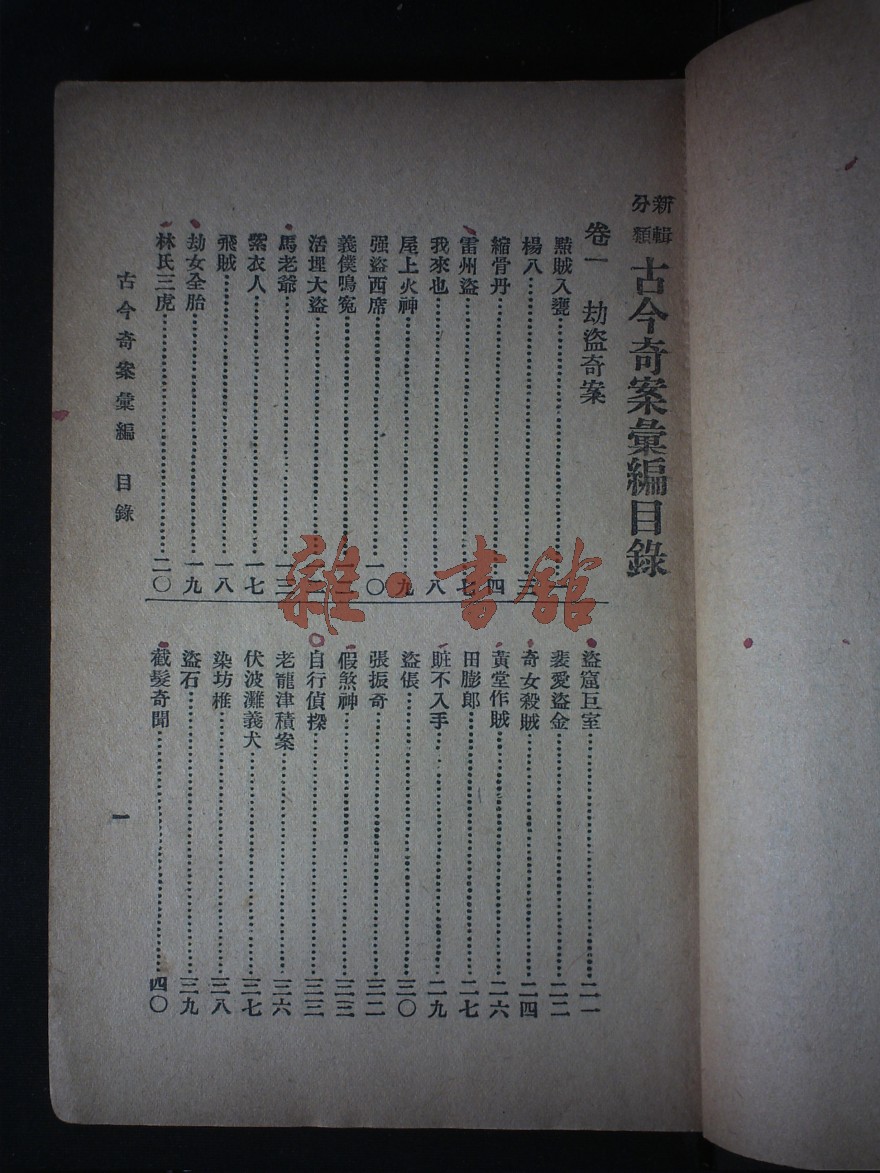 新輯分類 古今奇案彙編目錄
卷一 劫盜奇案
黠賊入甕 一
楊八 三
縮骨丹 四
雷州盜 七
我來也 八
尾上火神 九
强盜西席 一〇
義僕鳴冤
活埋大盜
馬老爺 一三
紫衣人 一七
飛賊 一八
劫女全胎 一九
林氏三虎 二〇
盜窟巨室 二一
裴愛盜金 二二
奇女殺賊 二四
黃堂作賊 二六
田膨郎 二七
贓不入手 二九
盜倀 三〇
張振奇 三二
假煞神 三三
自行偵探 三三
老龍津積案 三六
伏波灘義犬 三七
染坊椎 三八
盜石 三九
截髮奇聞 四〇
古今奇案彙編 目錄
一
雜·書館